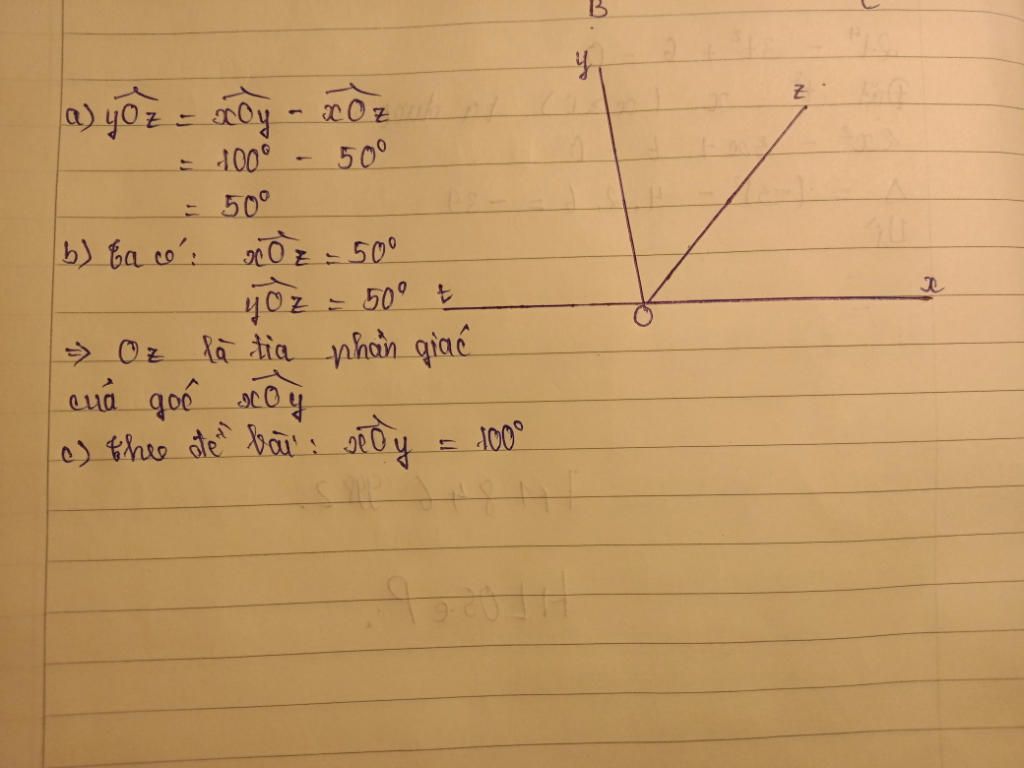 B
C
y
z
a) yOz = xOy - xOz
= 100° - 50°
= 50°
b) ta có: xOz = 50°
yOz = 50°
t
x
O
=> Oz là tia phân giác
của góc xOy
c) theo đề bài: xOy = 100°